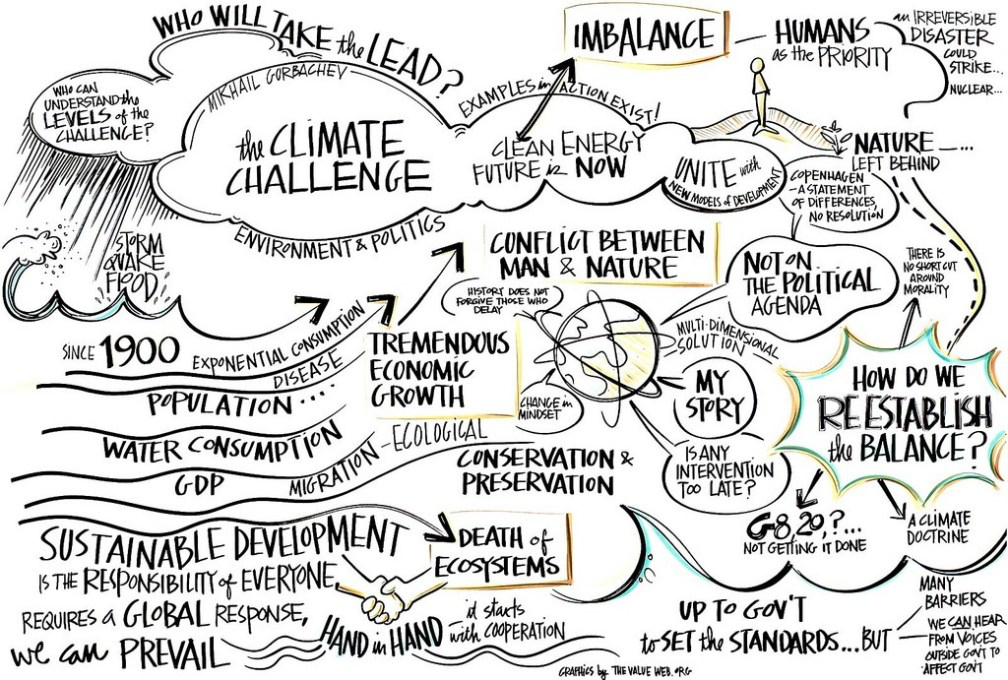 WHO WILL TAKE the LEAD?
MIKHAIL GORBACHEV
WHO CAN
UNDERSTAND the
LEVELS of the
CHALLENGE?
the CLIMATE
CHALLENGE
ENVIRONMENT & POLITICS
EXAMPLES in ACTION EXIST!
CLEAN ENERGY
FUTURE is NOW
UNITE with
NEW MODELS of DEVELOPMENT
IMBALANCE
HUMANS
as the PRIORITY
an IRREVERSIBLE
DISASTER
COULD
STRIKE...
NUCLEAR...
NATURE —...
LEFT BEHIND
COPENHAGEN
- A STATEMENT
OF DIFFERENCES,
NO RESOLUTION
STORM
QUAKE
FLOOD
CONFLICT BETWEEN
MAN & NATURE
HISTORY DOES NOT
FORGIVE THOSE WHO
DELAY
NOT ON
THE POLITICAL
AGENDA
THERE IS
NO SHORT CUT
AROUND
MORALITY
SINCE 1900
EXPONENTIAL CONSUMPTION
DISEASE
POPULATION ...
WATER CONSUMPTION
GDP
MIGRATION - ECOLOGICAL
TREMENDOUS
ECONOMIC
GROWTH
CHANGE in
MINDSET
MULTI-DIMENSIONAL
SOLUTION
MY
STORY
IS ANY
INTERVENTION
TOO LATE?
HOW DO WE
REESTABLISH
the BALANCE?
CONSERVATION &
PRESERVATION
G8, 20, ?...
NOT GETTING IT DONE
A CLIMATE
DOCTRINE
DEATH of
ECOSYSTEMS
SUSTAINABLE DEVELOPMENT
IS THE RESPONSIBILITY of EVERYONE,
REQUIRES a GLOBAL RESPONSE,
we can PREVAIL
HAND in HAND
it starts
with COOPERATION
UP TO GOV'T
to SET the STANDARDS...BUT
MANY
BARRIERS
WE CAN HEAR
FROM VOICES
OUTSIDE GOV'T TO
AFFECT GOV'T
GRAPHICS by THE VALUE WEB.ORG